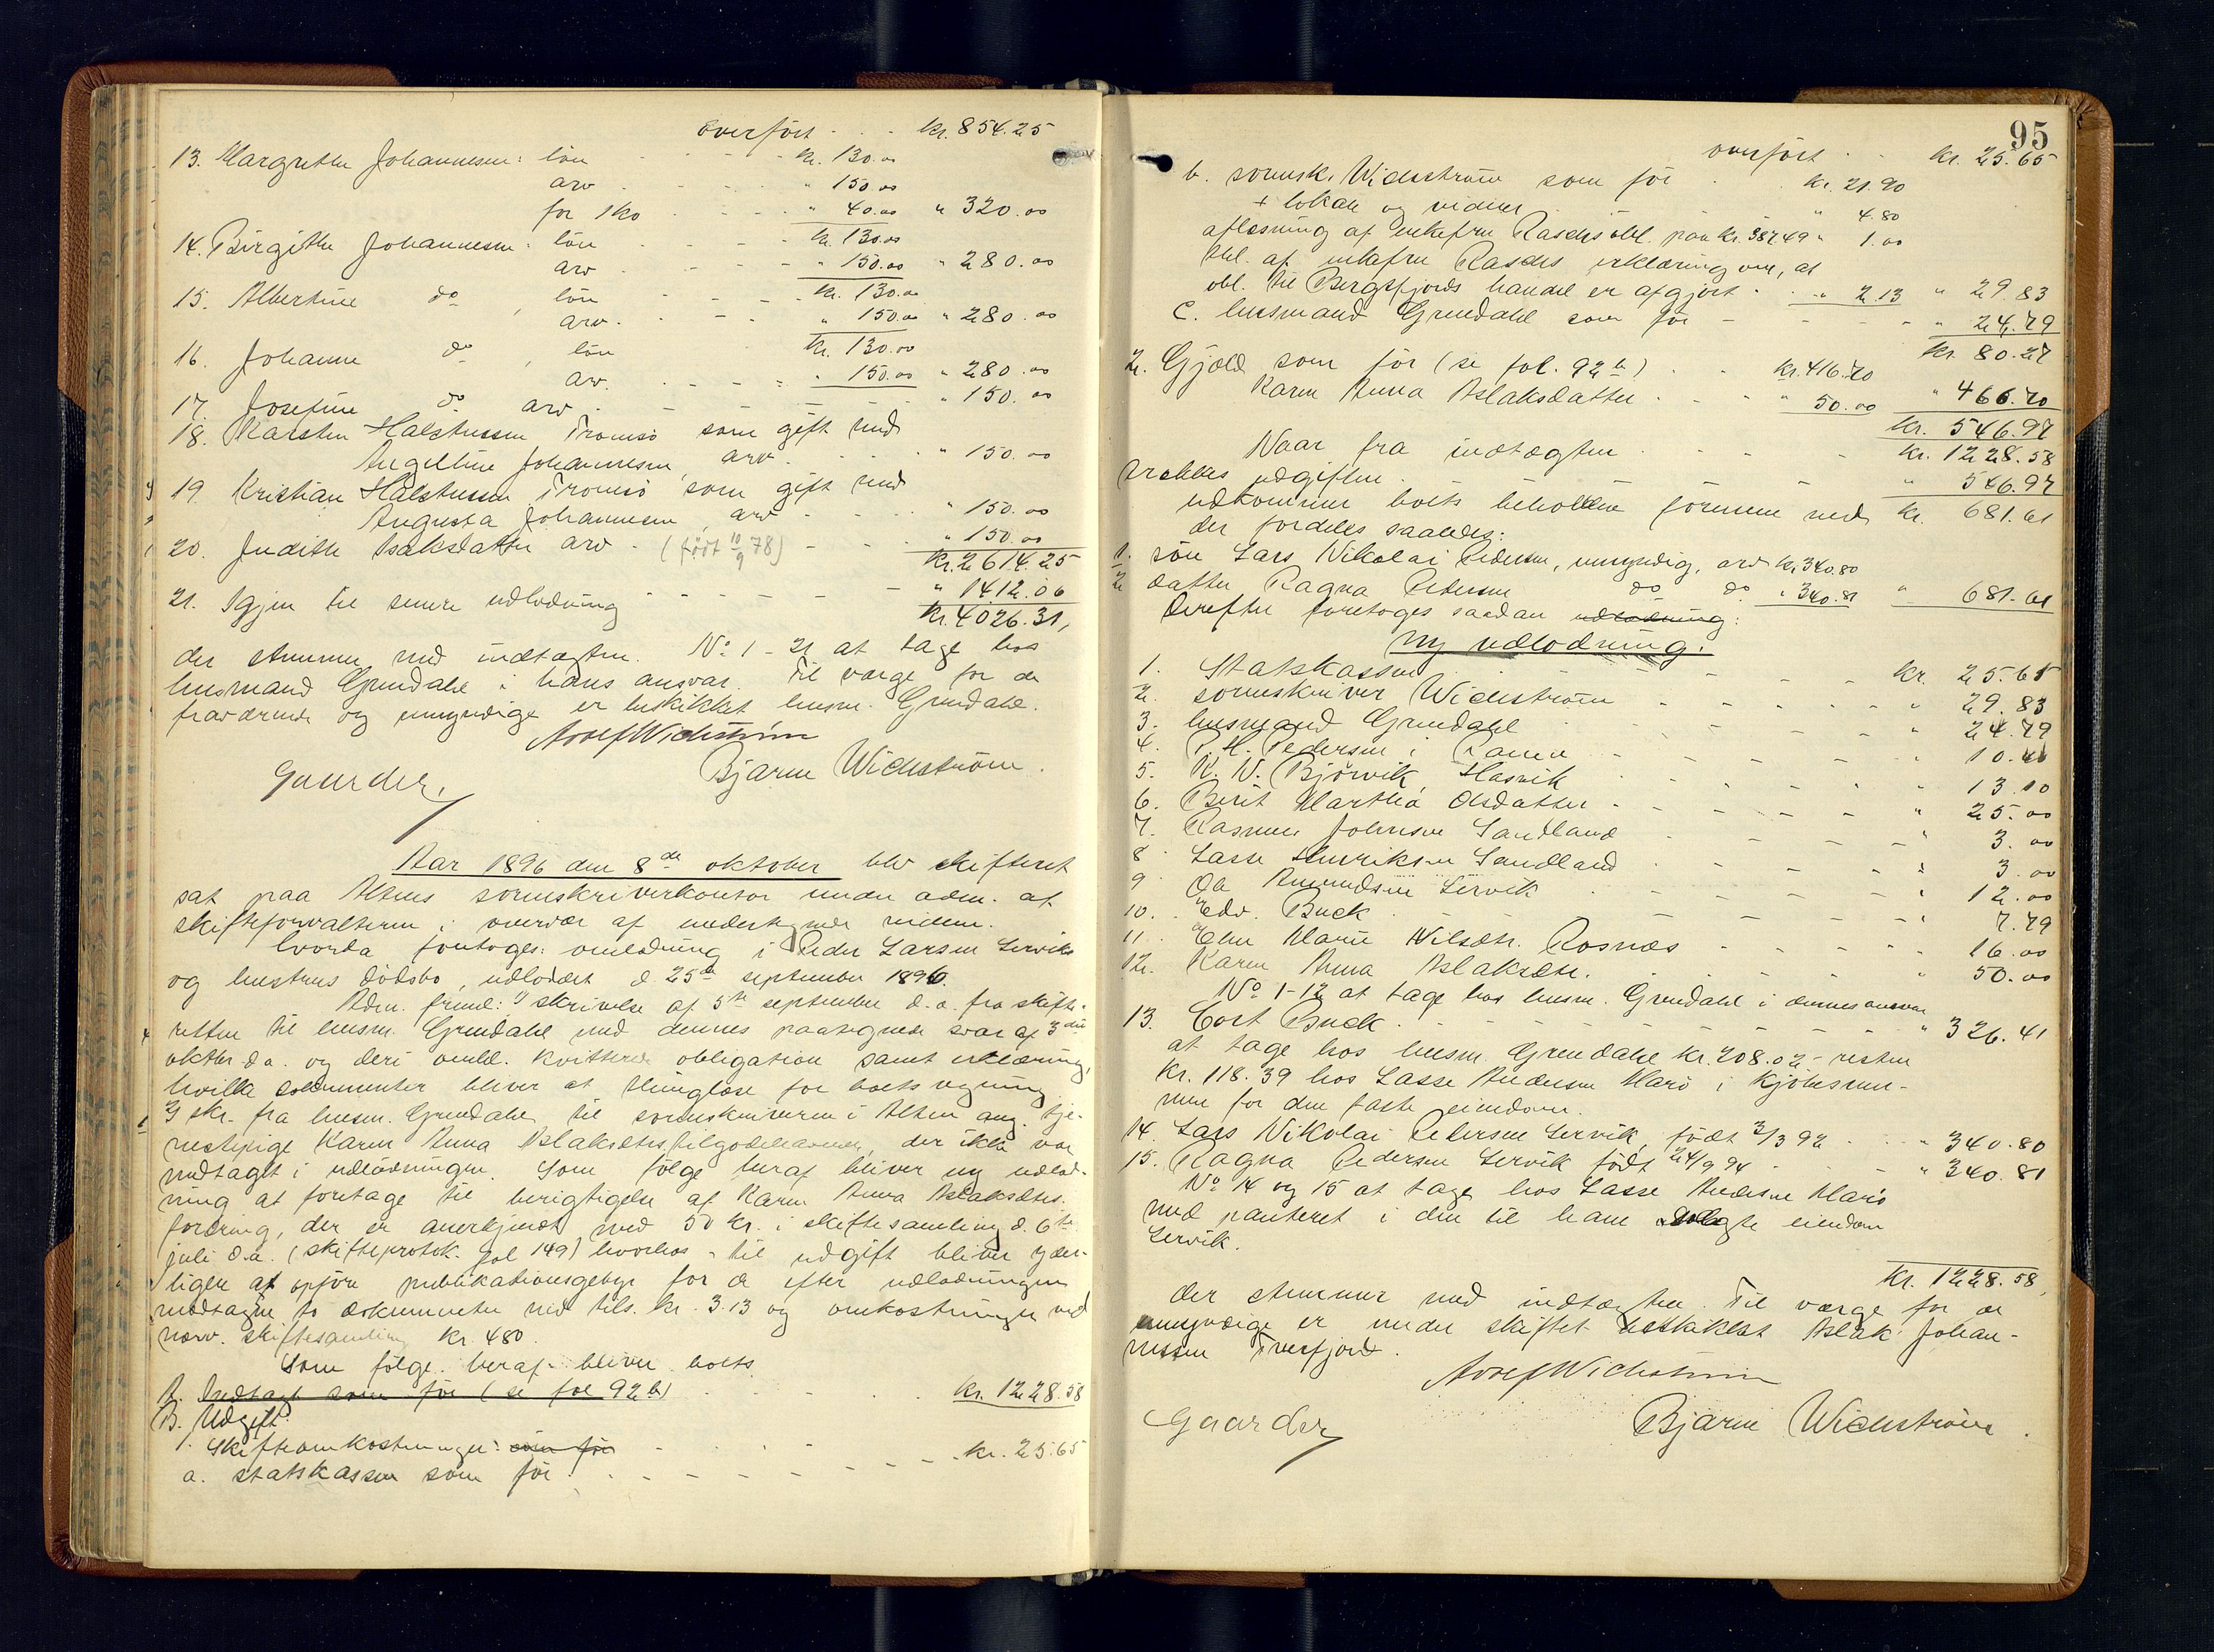 overført . . . kr. 854.25
13. Margrethe Johannesen: løn - - - - kr. 130.00
arv . - - - " 150.00
for sko . - - . " 40.00 " 320.00
14. Birgithe Johannesen: løn - - - - kr. 130.00
arv - - - " 150.00 " 280.00
15. Albertine do, løn - - - kr. 130.00
arv. - - - " 150.00 " 280.00
16. Johanne do, løn kr. 130.00
arv. - - - - " 150.00 " 280.00
17. Josefine do arv. - - - - - - " 150.00
18. Karsten Halstensen Tromsø som gift med
Angelline Johannesen, arv. . . . " 150.00
19. Kristian Halstensen, Tromsø som gift med
Augusta Johannesen, arv - - - - " 150.00
20. Judith Isaksdatter arv - (født 10/9 78) - - . " 150.00
kr. 2614.25
21. Igjen til senere udlodning - - - - - - - " 1412.06
kr. 4026.31,
der stemmer med indtægten. No 1 - 21 at tage hos
lensmand Grundahl i hans ansvar. Til værge for de
fraværende og umyndige er beskikket lensm. Grundahl.
Adolf Wichstrøm
Gaarder. Bjarne Wichstrøm.
Aar 1896 den 8de oktober blev skifteret
sat paa Altens sorenskriverkontor under adm. af
skifteforvalteren i overvær af undertegnede vidner.
Hvorda foretoges: omlodning i Peder Larsen Lerviks
og hustrus dødsbo, udloddet d 25de september 1896.
Adm. freml: 1) skrivelse af 5te september d.a. fra skifte-
retten til lensm. Grundahl med dennes paategnede svar af 3die
oktbr. d.a. og deri omhl. kvitterede obligation samt erklæring,
hvilke dokumenter bliver at thinglæse for boets regning
2) skr. fra lensm. Grundahl til sorenskriveren i Alten ang. tje-
nestepige Karen Anna Aslaksdtrs tilgodehavende, der ikke var
medtaget i udlodningen. Som følge heraf bliver ny udlod-
ning at foretage til berigtigelse af Karen Anna Aslaksdtrs
fordring, der er anerkjendt med 50 kr. i skiftesamling d. 6te
juli d.a. (skifteprotok. fol 149) hvorhos - til udgift bliver yder-
ligere at opføre publikationsgebyr for de efter udlodningen
modtagne to dokumenter med tils. kr. 3.13 og omkostninger ved
nærv. skiftesamling kr. 4.80.
Som følge heraf bliver boets
A. Indtægt som før (se fol 92 b) . . . . kr. 1228.58
B. Udgift:
1. Skifteomkostninger: som før
a. statskassen som før . - - - - - - - kr. 25.65
95
overført . . kr. 25.65
b. sorensk. Wichstrøm som før . . kr. 21.90
+ lokale og vidner . . . " 4.80
aflæsning af enkefru Raschs obl. paa kr. 387.49 " 1.00
thl. af enkefru Raschs erklæring om, at
obl. til Bergsfjords handel er afgjort . . " 2.13 " 29.83
c. lensmand Grundahl som før - - - - - " 24.79
kr. 80.27
2. Gjæld som før (se fol. 92 b) . . kr. 416.70
Karen Anna Aslaksdatter . . . " 50.00 " 466.70
kr. 546.97
Naar fra indtægten . . . . kr. 1228.58
trækkes udgiften . . . . " 546.97
udkommer boets beholdne formue med kr. 681.61
der fordeles saaledes:
1. søn Lars Nikolai Pedersen, umyndig, arv kr. 340.80
2. datter Ragna Pedersen do do " 340.81 " 681.61
Derefter foretoges saadan udlodning:
ny udlodning.
1. Statskassen . - - - - - kr. 25.65
2. sorenskriver Wichstrøm - - - - - - " 29.83
3. lensmand Grundahl . . . - - - " 24.79
4. P. H. Pedersen i - - - - - " 10.41
5. K. N. Bjørvik, Hasvik . . . . " 13.10
6. Berit Martha Olsdatter - - - - - - " 25.00
7. Rasmus Johnsen Sandland - - - - " 3.00
8. Lasse Henriksen Sandland . . - - - " 3.00
9. Ole Amundsen Lervik . - - - - " 12.00
10. Edv. Buck . - - - - - - " 7.79
11. Elen Marie Nilsdtr. Rosnæs - - - - - " 16.00
12. Karen Anna Aslaksdtr. . . . . . " 50.00
No 1-12 at tage hos lensm. Grundahl i dennes ansvar
13. Cort Buck . - - - - - - - " 326.41
at tage hos lensm. Grundahl kr. 208.02 - resten
kr. 118.39 hos Lasse Andersen Marø i kjøbesum-
men for den faste eiendom.
14. Lars Nikolai Pedersen Lervik, født 3/3 92 . . " 340.80
15. Ragna Pedersen Lervik født 24/9 94 . . . - " 340.81
No 14 og 15 at tage hos Lasse Andersen Marø
med panteret i den til ham solgte eiendom
Lervik.
kr. 1228.58,
der stemmer med indtægten. Til værge for de
umyndige er under skiftet beskikket Aslak Johan-
nessen Tverfjord.
Adolf Wichstrøm
Gaarder Bjarne Wichstrøm.